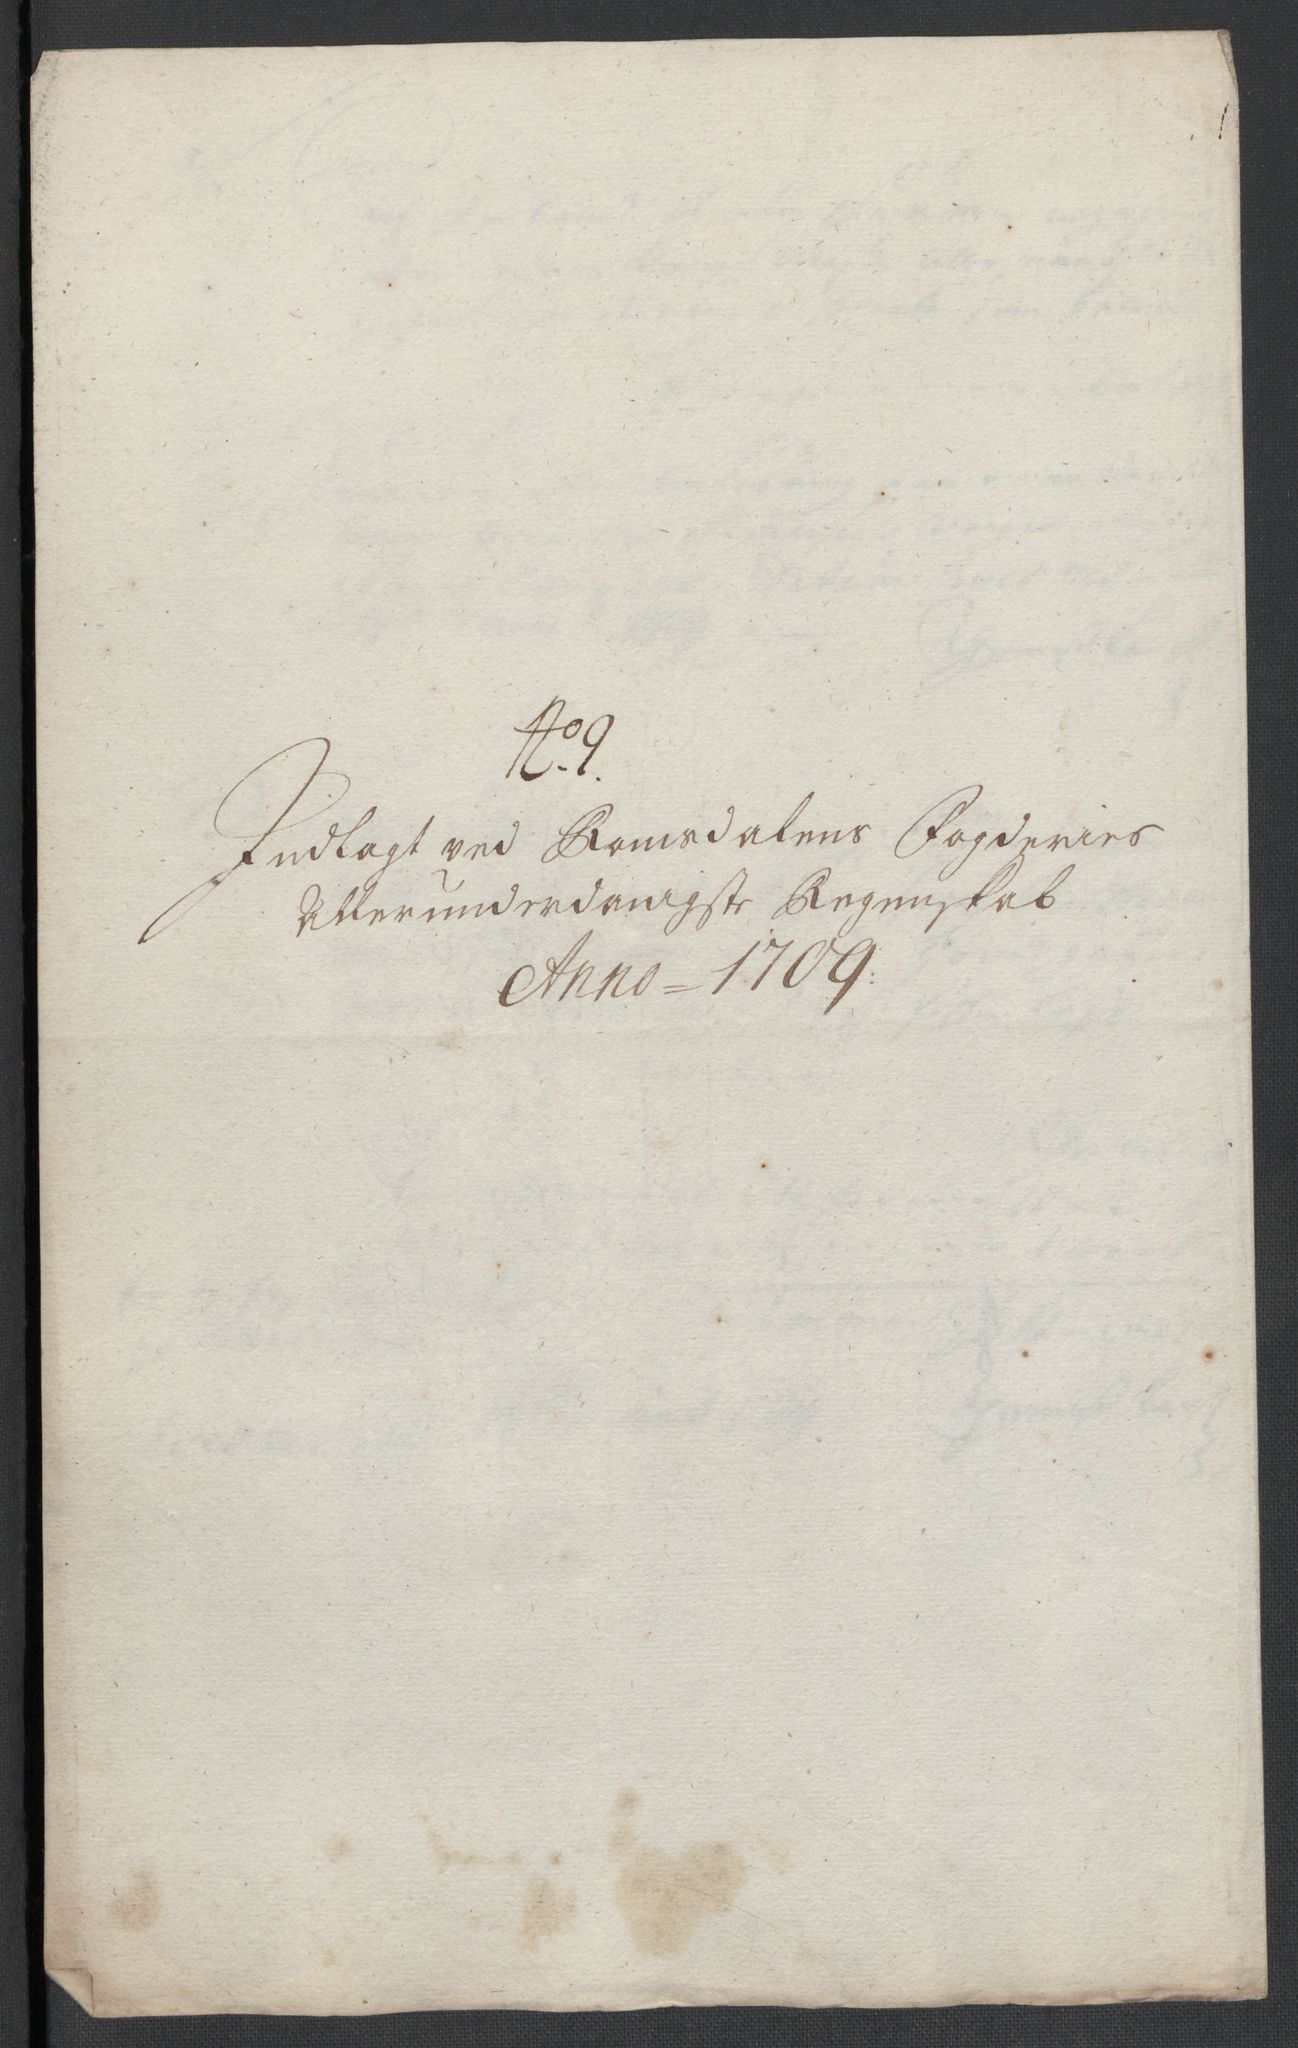 No. 9.
Indlagt ved Romsdalens Fogderies
Allerunderdanigste Regenskab
Anno = 1709: